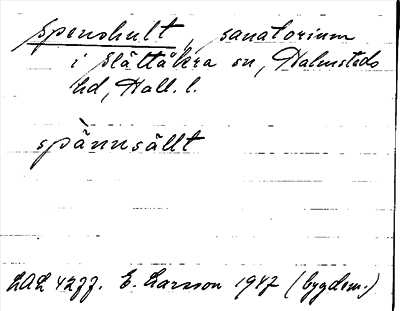 Spenshult, sanatorium
i Slättåkra sn, Halmstads
hd, Hall. l.
spànnsällt
LAL 4277. E. Larsson 1947 (bygdem.)